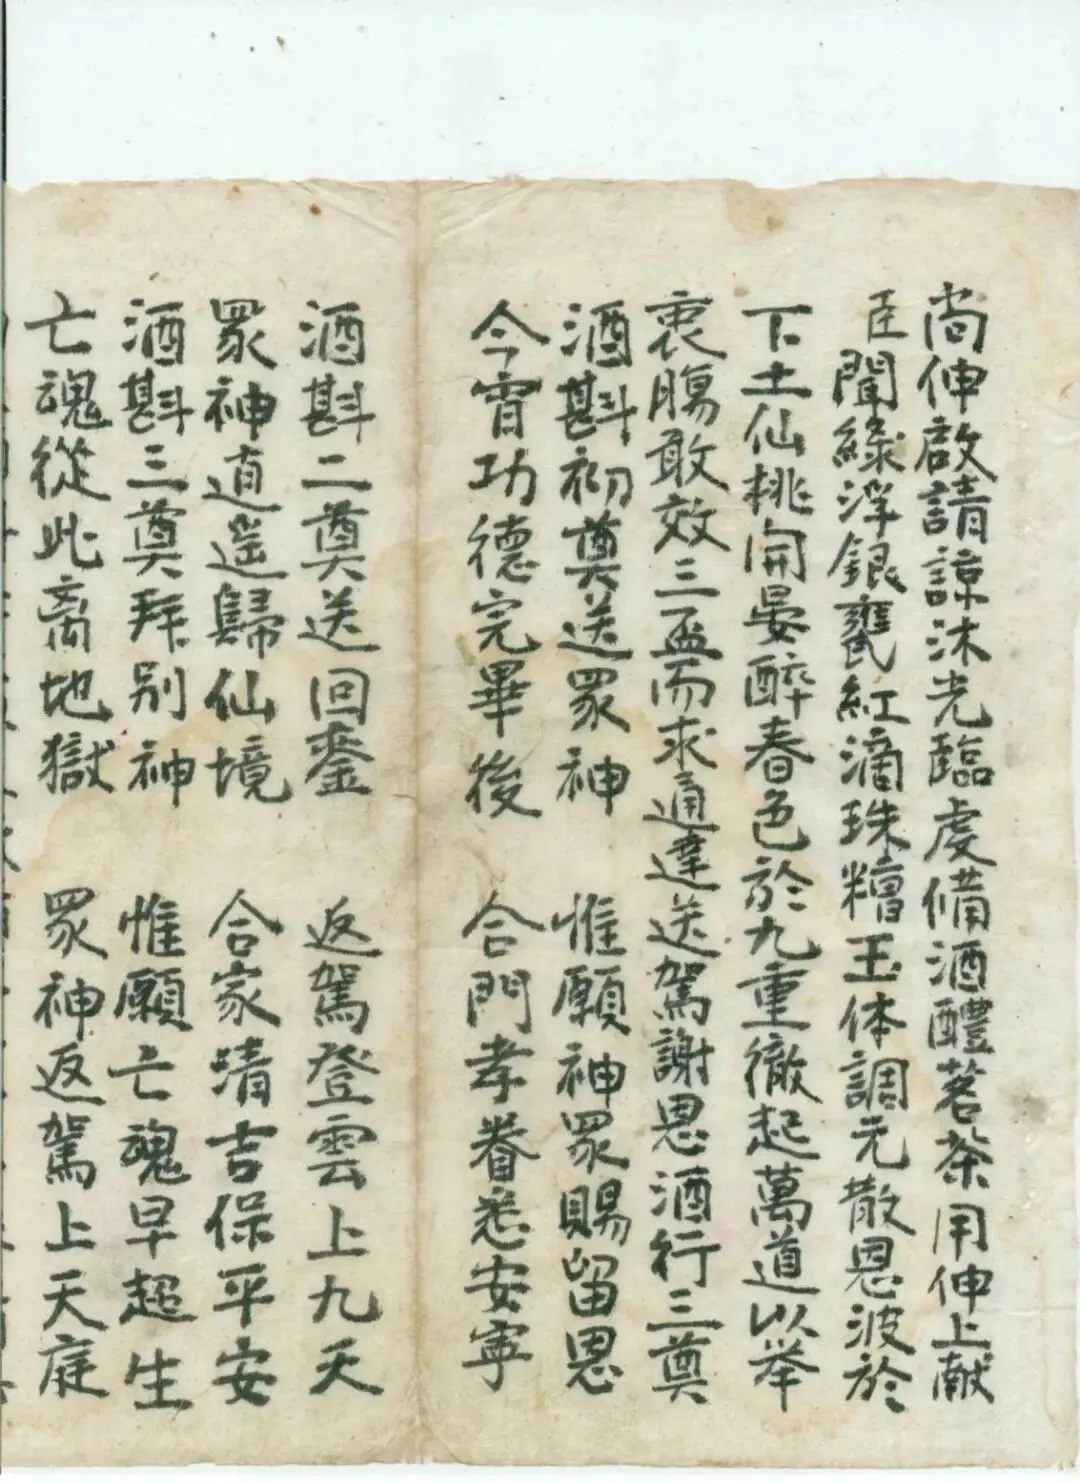 尚伸啟請諒沐光臨虔備酒醴茗茶用伸上献
臣聞綠浮銀甕紅滴珠糟玉体調元散恩波於
下土仙桃開晏醉春色於九重徹起萬道以举
衷腸敢效三盃而求通達送駕謝恩酒行三奠
酒斟初奠送眾神 惟願神眾賜留恩
今宵功德完畢後 合門孝眷悉安寧
酒斟二奠送回鑾 返駕登雲上九天
眾神逍遥歸仙境 合家清吉保平安
酒斟三奠拜别神 惟願亡魂早超生
亡魂從此离地獄 眾神返駕上天庭